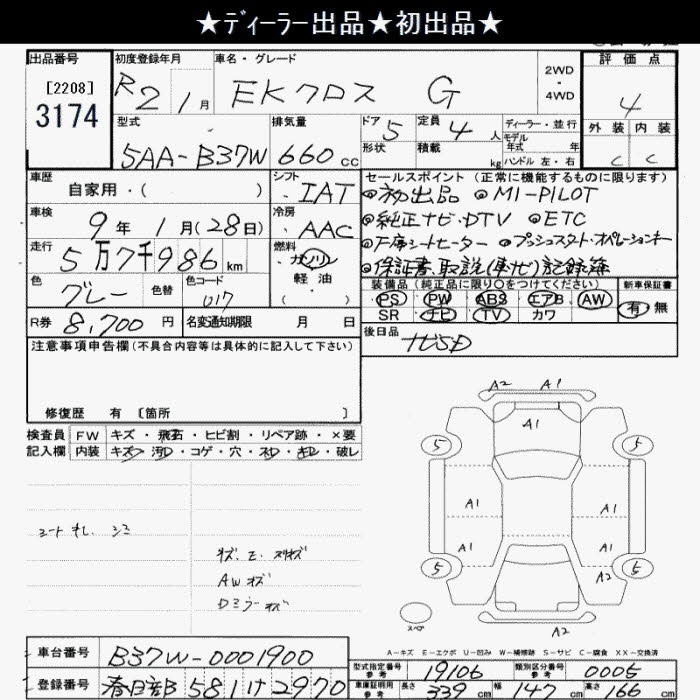 ★ディーラー出品★初出品★
出品番号
[2208]
3174
初度登録年月
R2 1月
車名・グレード
EKクロス G
2WD
・
4WD
評価点
4
外装 内装
C C
型式
5AA-B37W
排気量
660cc
ドア 5
形状
定員 4人
積載 kg
ディーラー・並行
モデル
年式 年
ハンドル 左・右
車歴
自家用・( )
シフト
IAT
車検
9年1月(28日)
冷房
AAC
走行
5万7千986km
燃料
ガソリン
軽油
・
( )
色
グレー
色替
色コード
U17
R券 8,700円
名変通知期限 月 日
セールスポイント(正常に機能するものに限ります)
◎初出品 ◎MI-PILOT
◎純正ナビ・DTV ◎ETC
◎F席シートヒーター ◎プッシュスタート・オペレーションキー
◎保証書、取説(車ナビ)記録簿
装備品(純正品に限り○をつけてください)
PS PW ABS エアB AW
SR ナビ TV カワ
新車保証書
有・無
後日品
ナビSD
注意事項申告欄(不具合内容等は具体的に記入して下さい)
修復歴 有 〔箇所 〕
検査員
記入欄
FW キズ・飛石・ヒビ割・リペア跡・×要
内装 キズ・汚・コゲ・穴・スレ・キレ・破レ
シート キレ シミ
AWキズ
Dミラーキズ
A2 A1
A1
5 5
A1 A1
A1 A1
5 5
A2
スペア
A2
A-キズ E-エクボ U-凹み W-補修跡 S-サビ C-腐食 XX-交換済
車台番号 B37W-0001900
登録番号 春日部 581 け 2970
型式指定番号
参考
19106
類別区分番号
参考
0005
車庫証明用
参考
長さ 339cm 幅 147cm 高さ 166cm